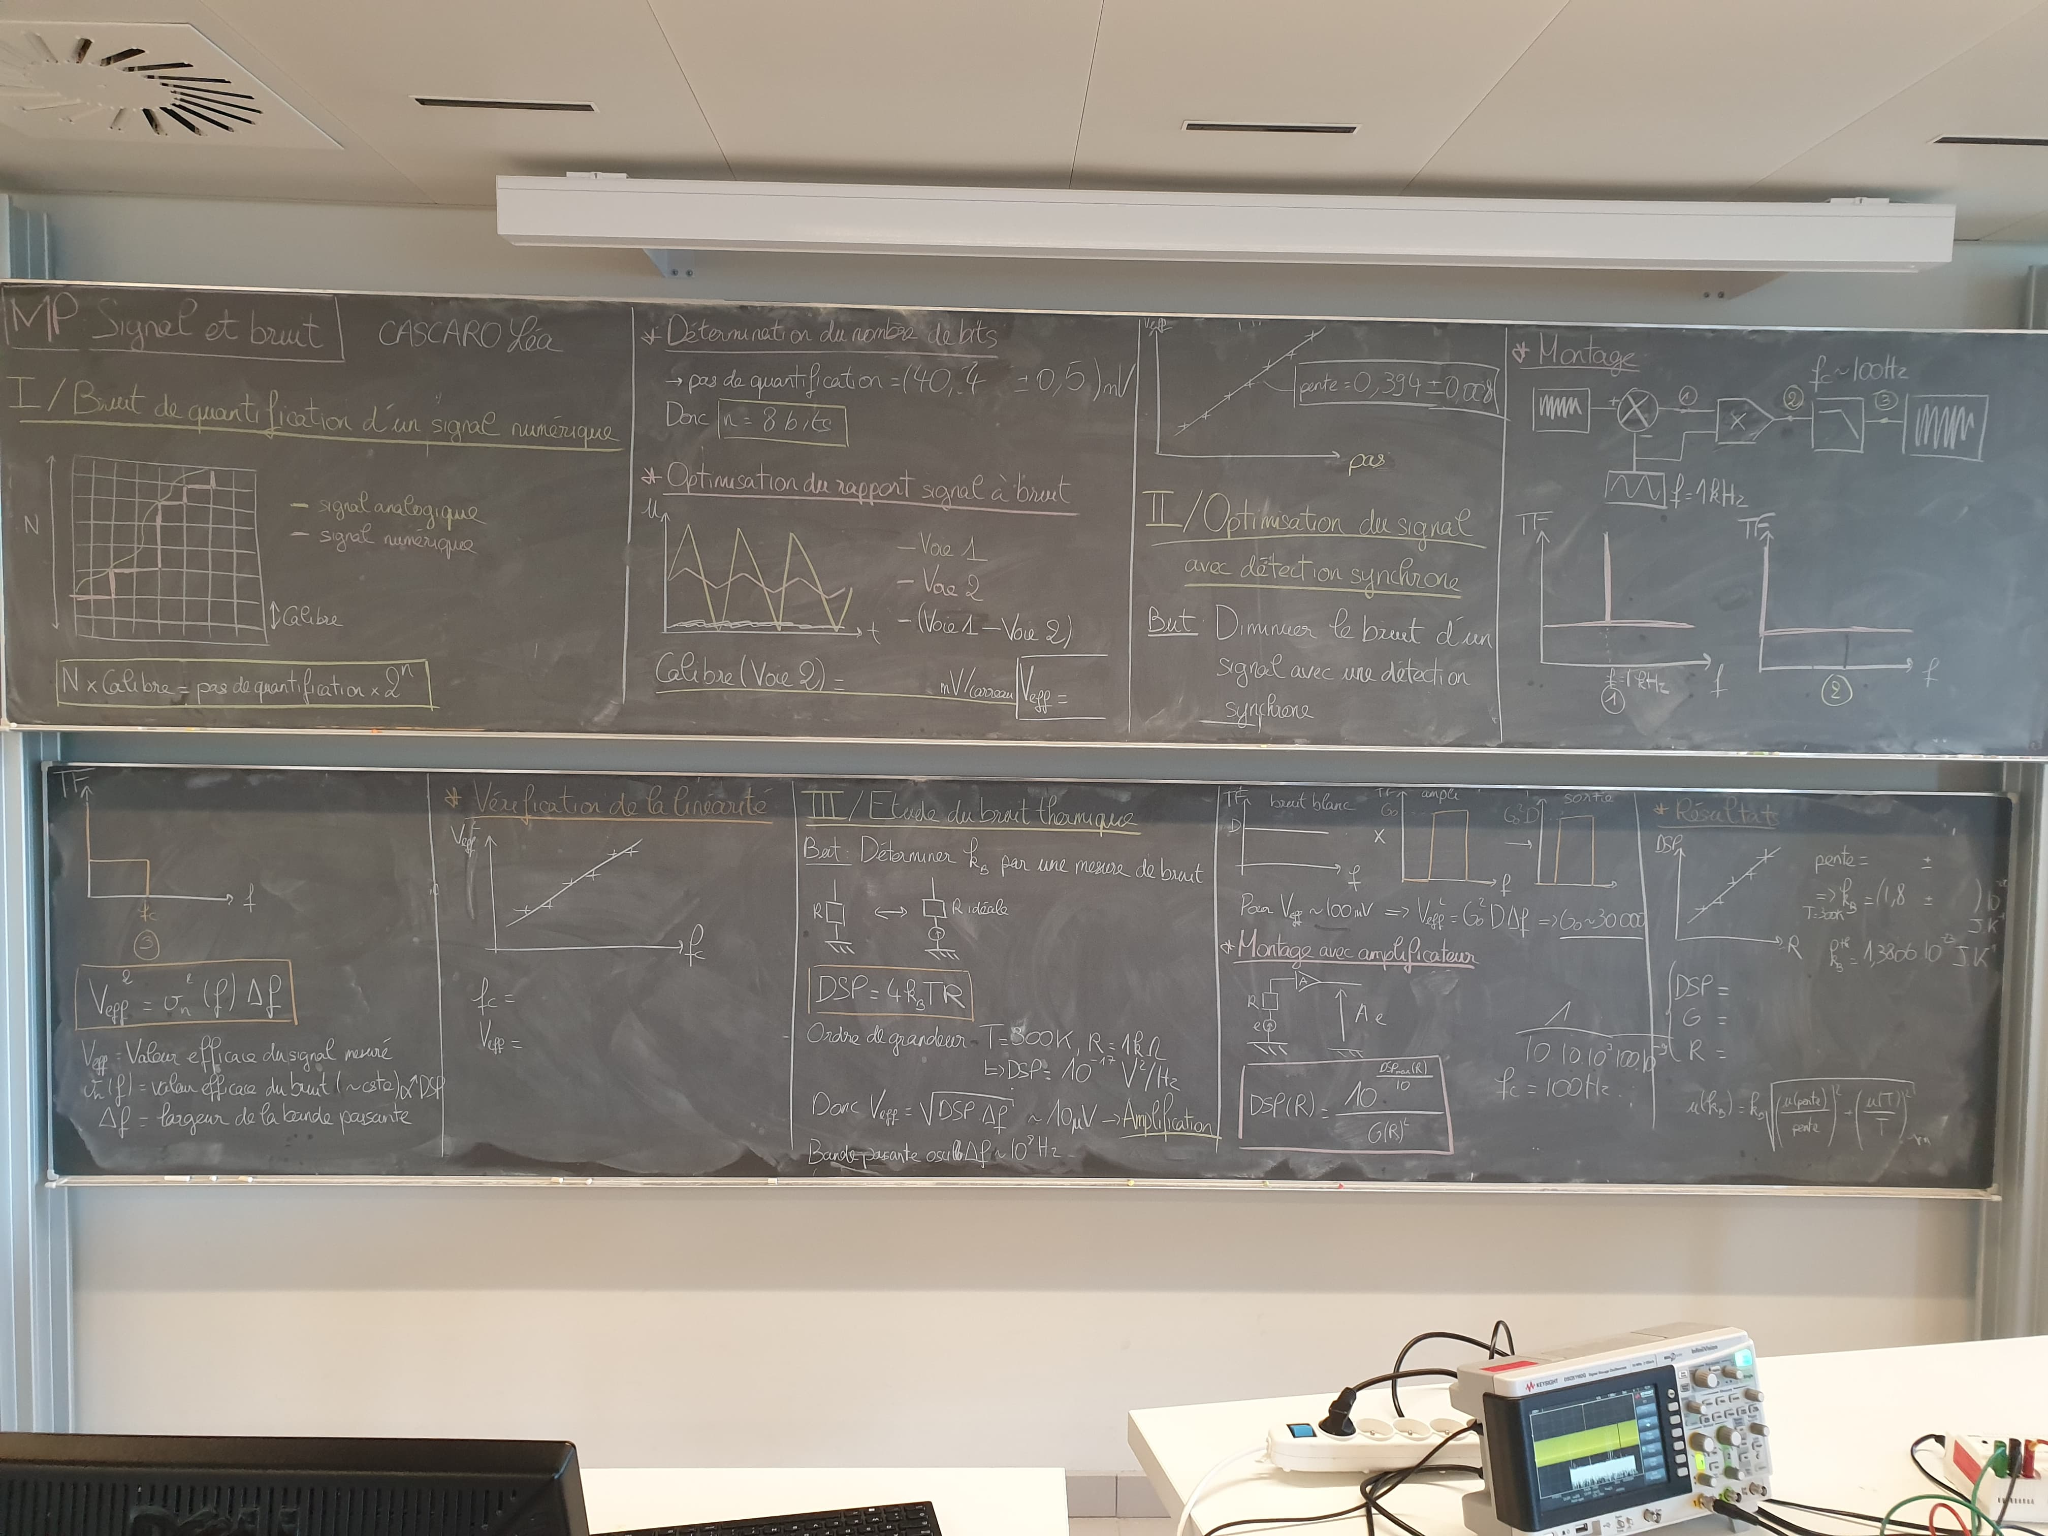 MP: Signal et bruit
CASCARO Léa
I/ Bruit de quantification d'un signal numérique
N
— signal analogique
— signal numérique
Calibre
N × Calibre = pas de quantification × 2^n
* Détermination du nombre de bits
→ pas de quantification = (40,4 ± 0,5) mV
Donc n = 8 bits
* Optimisation du rapport signal à bruit
u
t
— Voie 1
— Voie 2
— (Voie 1 – Voie 2)
Calibre (Voie 2) = mV/carreau
Veff =
Veff
pente = 0,394 ± 0,008
pas
II/ Optimisation du signal
avec détection synchrone
But: Diminuer le bruit d'un
signal avec une détection
synchrone
* Montage
fc ~ 100Hz
+ × ① × ② ③
-
f = 1kHz
TF
f
f = 1kHz
①
TF
f
②
TF
f
fc
③
Veff² = σn² (f) Δf
Veff = Valeur efficace du signal mesuré
σn(f) = valeur efficace du bruit (~ cste) ∝ DSP
Δf = largeur de la bande passante
* Vérification de la linéarité
Veff²
fc
fc =
Veff =
III/ Etude du bruit thermique
But: Déterminer kB par une mesure de bruit
R ⟷ R idéale
DSP = 4kBTR
Ordre de grandeur T = 300K, R = 1kΩ
↳ DSP = 10^-17 V²/Hz
Donc Veff = √DSP Δf ~ 10μV → Amplification
Bande passante oscillo Δf ~ 10^8 Hz
TF bruit blanc
D
f
×
TF ampli
G0
f
→
G0²D sortie
Pour Veff ~ 100mV ⇒ Veff² = G0² D Δf ⇒ G0 ~ 30 000
* Montage avec amplificateur
R
e
A
Ae
DSP(R) = 10^(DSPmax(R)/10) / G(R)²
1
10 10 10³ 100.10^-9
fc = 100Hz
* Résultat
DSP
R
pente = ±
T=300K ⇒ kB = (1,8 ± ) 10
J.K
kB^th = 1,3806 10^-23 J.K^-1
DSP =
G =
R =
u(kB) = kB √(u(pente)/pente)² + (u(T)/T)²
KEYSIGHT
InfiniiVision